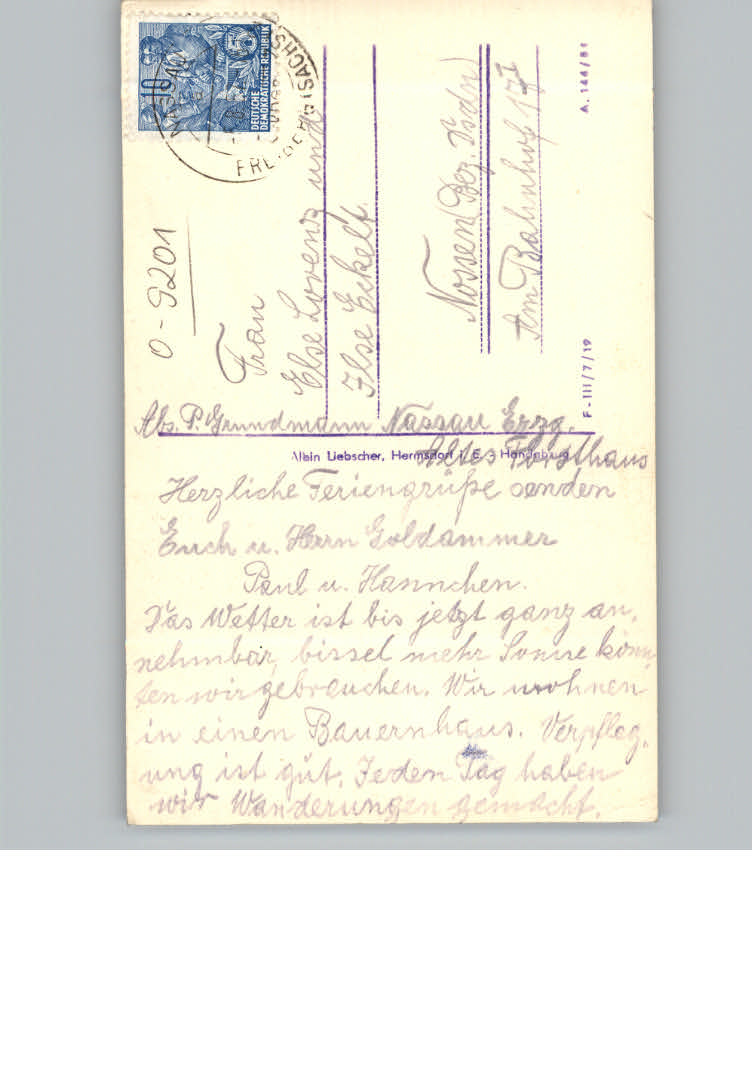 10
DEUTSCHE
DEMOKRATISCHE REPUBLIK
NASSAU
O-9201
Frau
Else Lorenz und
Ilse Eckelt
Nossen (Bez. Drdn)
Am Bahnhof 17 I
A. 144/51
F-III/7/19
Abs. P. Grundmann Nassau Erzg.
Altes Forsthaus
Albin Liebscher, Hermsdorf i. E. - Handabzug
Herzliche Feriengrüße senden
Euch u. Herrn Goldammer
Paul u. Hannchen.
Das Wetter ist bis jetzt ganz an,
nehmbar, bissel mehr Sonne könn,
ten wir gebrauchen. Wir wohnen
in einen Bauernhaus. Verpfleg,
ung ist gut. Jeden Tag haben
wir Wanderungen gemacht.